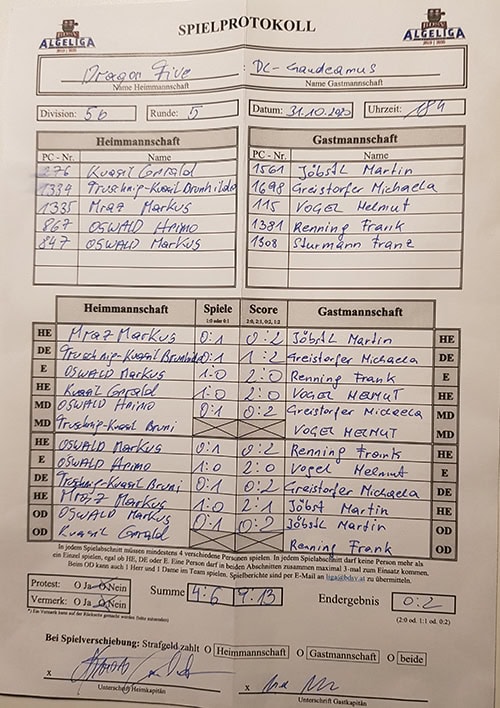 ALGELIGA
SPIELPROTOKOLL
ALGELIGA
Dragon Five : DC-Gaudeamus
Name Heimmannschaft Name Gastmannschaft
Division: 5b Runde: 5 Datum: 31.10.2020 Uhrzeit: 18h
Heimmannschaft Gastmannschaft
PC - Nr. Name PC - Nr. Name
276 Kvasil Gerald 1561 Jöbstl Martin
1334 Truschnig-Kvasil Brunhilde 1698 Greistorfer Michaela
1335 Mraz Markus 115 VOGEL Helmut
867 OSWALD Heimo 1381 Renning Frank
847 OSWALD Markus 1308 Sturmann Franz
Heimmannschaft Spiele Score Gastmannschaft
1:0 oder 0:1 2:0, 2:1, 0:2, 1:2
HE Mraz Markus 0:1 0:2 Jöbstl Martin HE
DE Truschnig-Kvasil Brunhilde 0:1 1:2 Greistorfer Michaela DE
E OSWALD Markus 1:0 2:0 Renning Frank E
HE Kvasil Gerald 1:0 2:0 VOGEL HELMUT HE
MD OSWALD Heimo 0:1 0:2 Greistorfer Michaela MD
MD Truschnig-Kvasil Bruni VOGEL HELMUT MD
HE OSWALD Markus 0:1 0:2 Renning Frank HE
E OSWALD Heimo 1:0 2:0 Vogel Helmut E
DE Truschnig-Kvasil Bruni 0:1 0:2 Greistorfer Michaela DE
HE Mraz Markus 1:0 2:1 Jöbst Martin HE
OD OSWALD Markus 0:1 0:2 Jöbstl Martin OD
OD Kvasil Gerald Renning Frank OD
In jedem Spielabschnitt müssen mindestens 4 verschiedene Personen spielen. In jedem Spielabschnitt darf keine Person mehr als
ein Einzel spielen, egal ob HE, DE oder E. Eine Person darf in beiden Abschnitten zusammen maximal 3-mal zum Einsatz kommen.
Beim OD kann auch 1 Herr und 1 Dame im Team spielen. Spielberichte sind per E-Mail an liga@bdsv.at zu übermitteln.
Protest: O Ja O Nein
Vermerk: O Ja O Nein Summe 4:6 9:13 Endergebnis 0:2
(2:0 od. 1:1 od. 0:2)
Bei Spielverschiebung: Strafgeld zahlt O Heimmannschaft O Gastmannschaft O beide
x x
Unterschrift Heimkapitän Unterschrift Gastkapitän